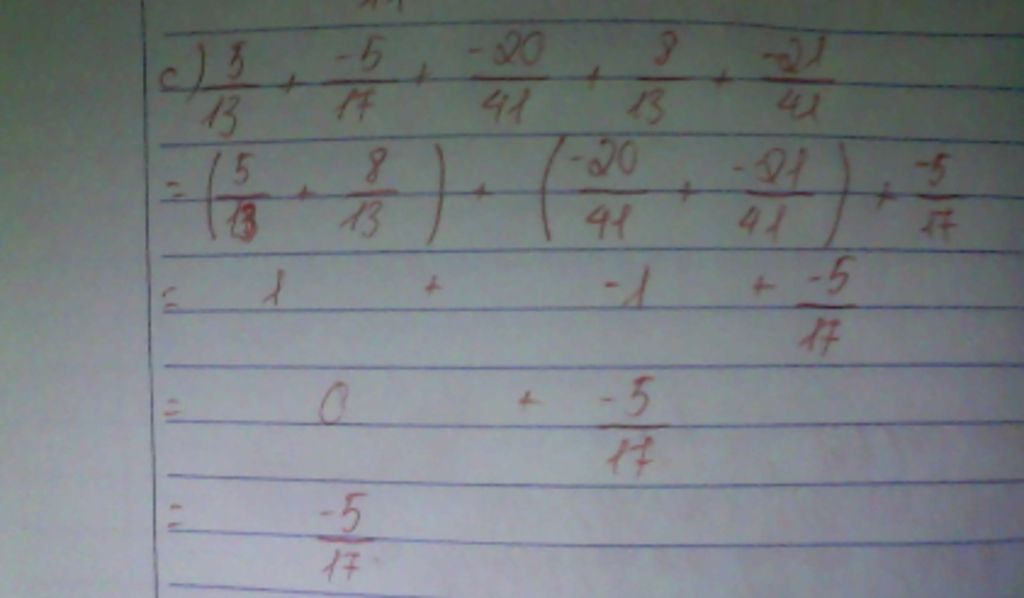 c) 5/13 + -5/17 + -20/41 + 8/13 + -21/41
= (5/13 + 8/13) + (-20/41 + -21/41) + -5/17
= 1 + -1 + -5/17
= 0 + -5/17
= -5/17